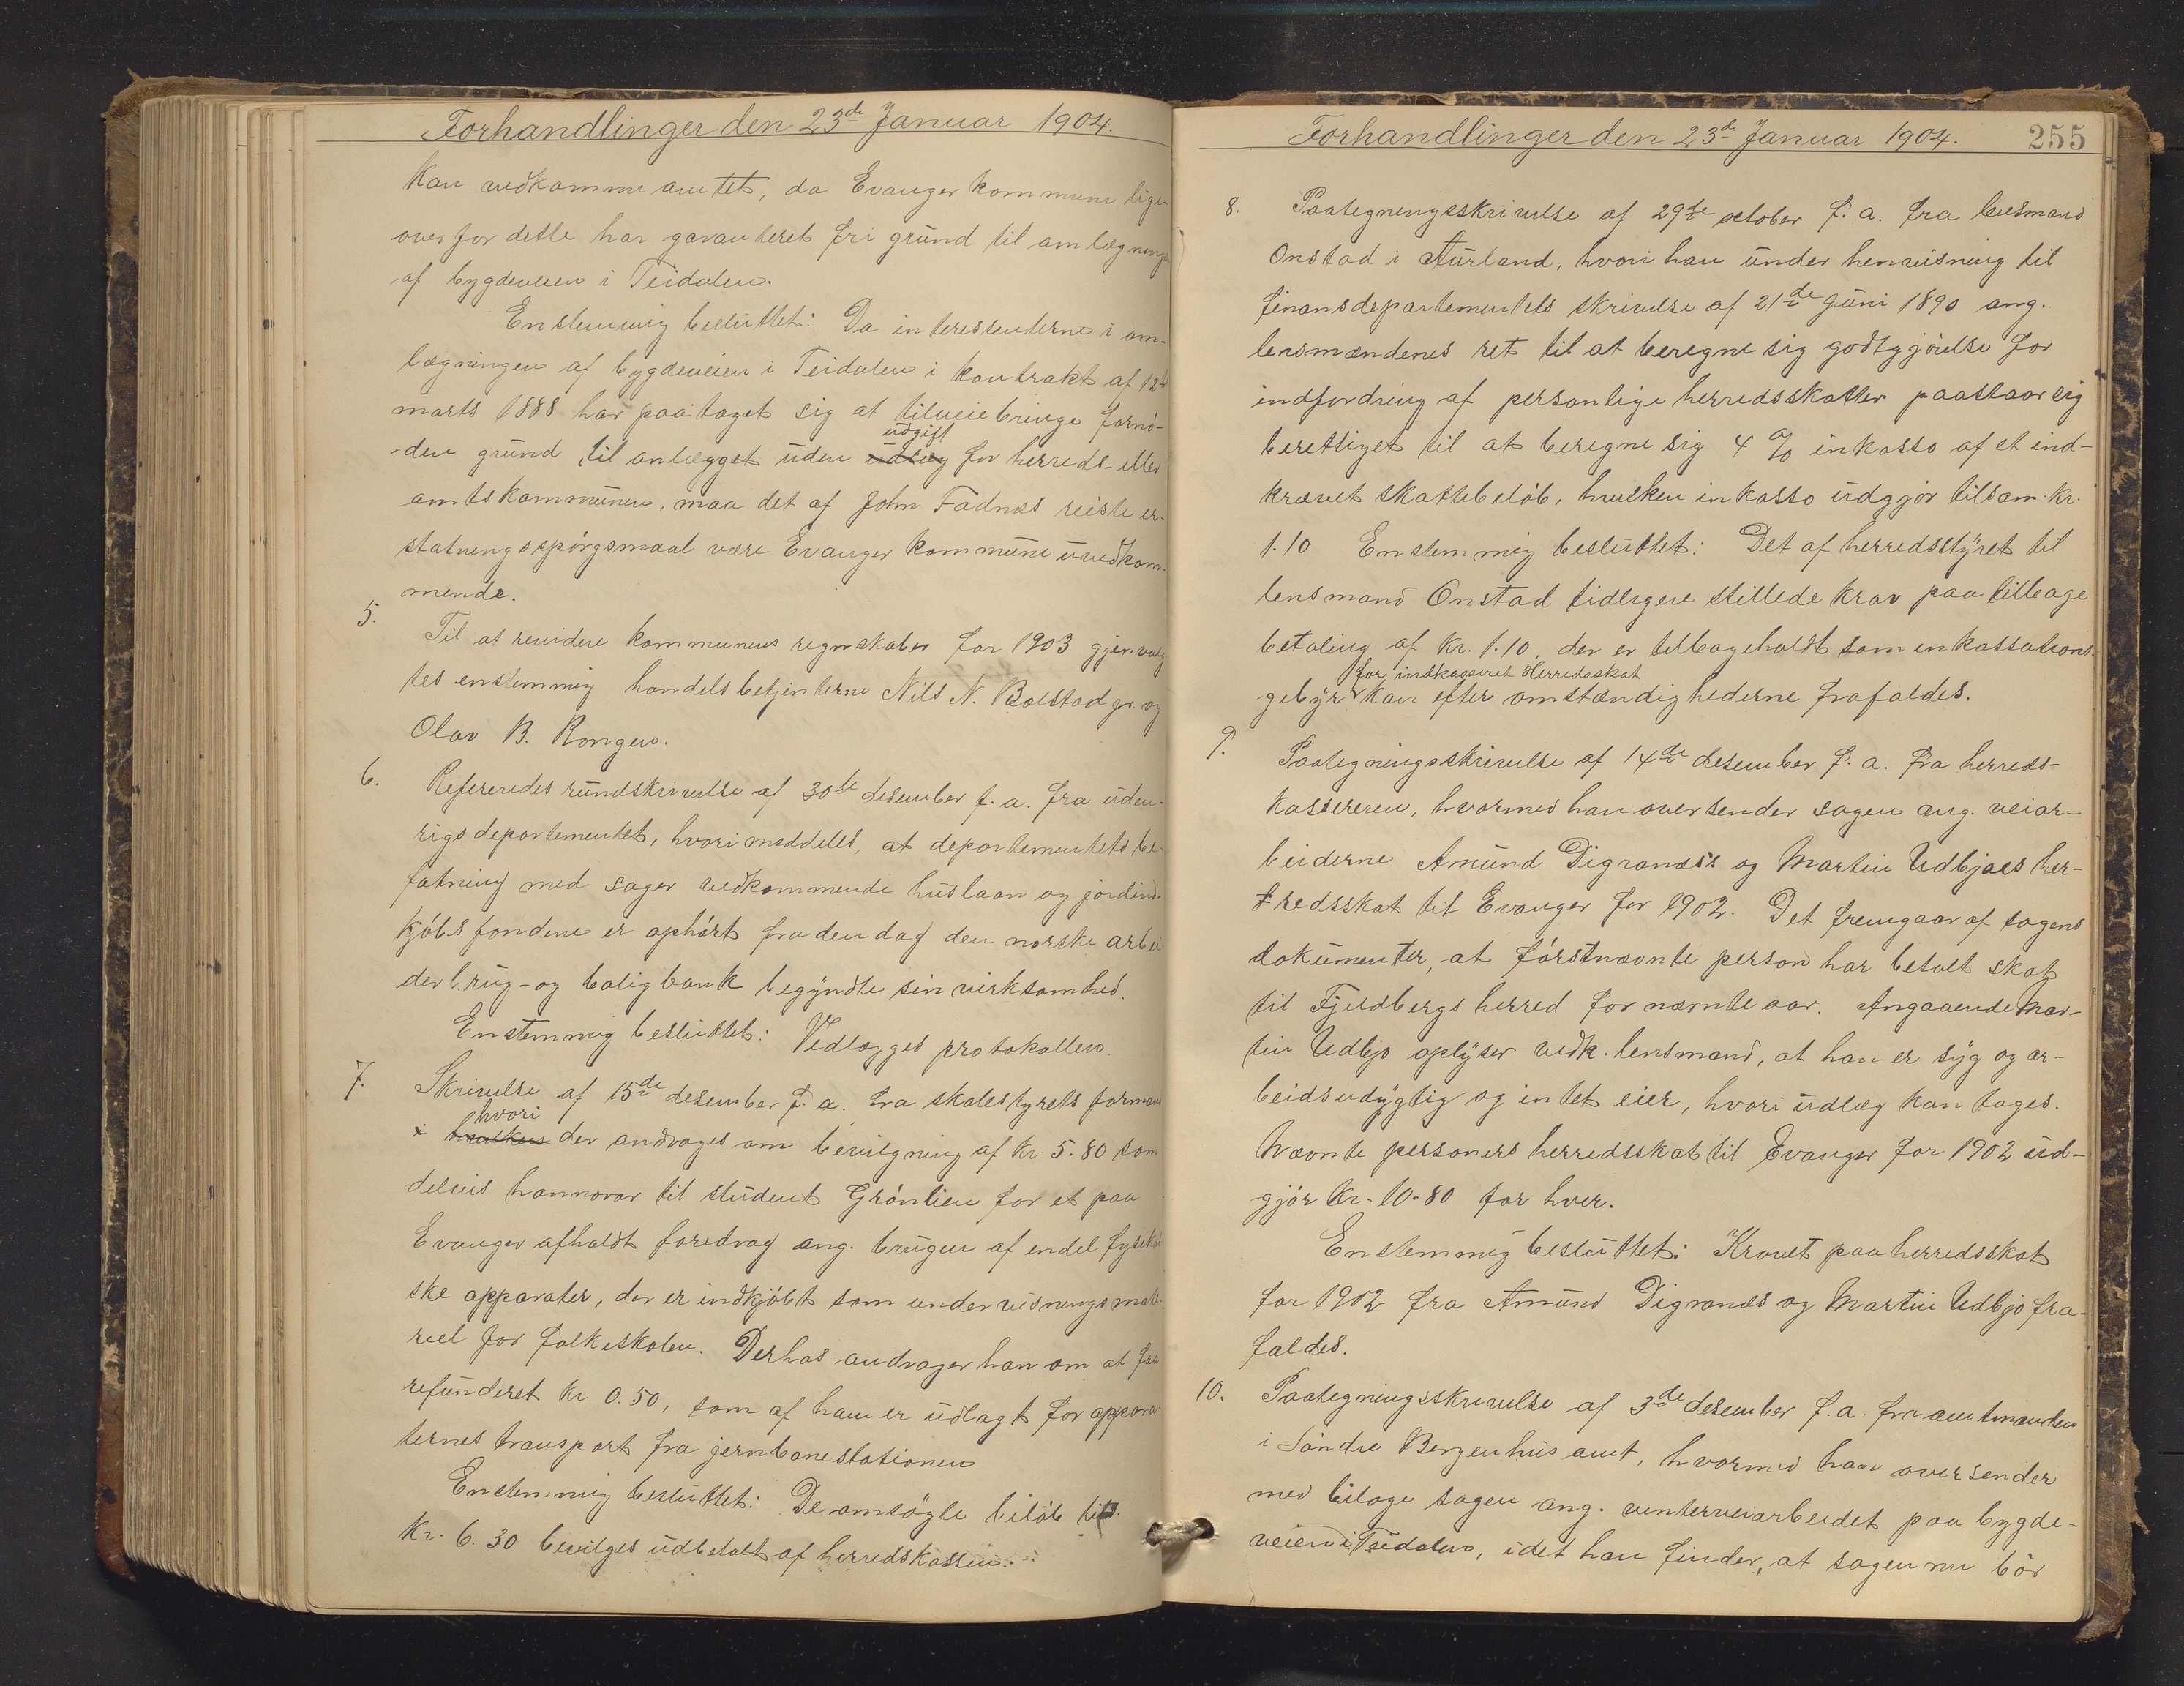 Forhandlinger den 23de Januar 1904.
kan vedkomme amtet, da Evanger kommune lige-
overfor dette har garanteret fri grund til omlægningen
af bygdeveien i Teidalen.
Enstemmig besluttet: Da interessenterne i om-
lægningen af bygdeveien i Teidalen i kontrakt af 12te
marts 1888 har paataget sig at tilveiebringe fornö-
udgift
den grund til anlægget uden udlæg for herreds- eller
amtskommunen, maa det af John Fadnes reiste er-
statningsspörgsmaal være Evanger kommune uvedkom-
mende.
5. Til at revidere kommunens regnskaber for 1903 gjenvalg-
tes enstemmig handelsbetjenterne Nils N. Bolstad jr. og
Olav B. Rongen.
6. Refereredes rundskrivelse af 30te desember f. a. fra uden-
rigsdepartementet, hvori meddeles, at departementets be-
fatning med sager vedkommende huslaan og jordind-
kjöbsfondene er ophört fra den dag den norske arbei-
derbrug- og boligbank begyndte sin virksomhed.
Enstemmig besluttet: Vedlægges protokollen.
7. Skrivelse af 15de desember f. a. fra skolestyrets formand
hvori
i hvilken der andrages om bevilgning af kr. 5.80 som
delvis honnorar til student Grönlien for et paa
Evanger afholdt foredrag ang. brugen af endel fysikal-
ske apparater, der er indkjöbt som undervisningsmate-
riel for folkeskolen. Derhos andrager han om at faa
refunderet kr. 0.50, som af ham er udlagt for appara-
ternes transport fra jernbanestationen
Enstemmig besluttet: De omsögte belöb til
kr. 6.30 bevilges udbetalt af herredskassen.
Forhandlinger den 23de Januar 1904. 255
8. Paategningsskrivelse af 29de october f. a. fra lensmand
Onstad i Aurland, hvori han under henvisning til
finansdepartementets skrivelse af 21de juni 1890 ang.
lensmændenes ret til at beregne sig godtgjörelse for
indfordring af personlige herredsskatter paastaar sig
berettiget til at beregne sig 4 % inkasso af et ind-
krævet skattebelöb, hvilken inkasso udgjör tilsam. kr.
1.10 Enstemmig besluttet: Det af herredsstyret til
lensmand Onstad tidligere stillede krav paa tilbage
betaling af kr. 1.10, der er tilbageholdt som inkassations-
for indkasseret Herredsskat
gebyr kan efter omstændighederne frafaldes.
9. Paategningsskrivelse af 14de desember f. a. fra herreds-
kassereren, hvormed han oversender sagen ang. veiar-
beiderne Amund Digranæs's og Martin Udbjoes her-
redsskat til Evanger for 1902. Det fremgaar af sagens
dokumenter, at förstnævnte person har betalt skat
til Fjeldbergs herred for nævnte aar. Angaaende Mar-
tin Udbjo oplyser vedk. lensmand, at han er syg og ar-
beidsudygtig og intet eier, hvori udlæg kan tages.
Nævnte personers herredsskat til Evanger for 1902 ud-
gjör kr. 10.80 for hver.
Enstemmig besluttet: Kravet paa herredsskat
for 1902 fra Amund Digranæs og Martin Udbjo fra-
faldes.
10. Paategningsskrivelse af 3de desember f. a. fra amtmanden
i Söndre Bergenhus amt, hvormed han oversender
med bilage sagen ang. vinterveiarbeidet paa bygde-
veien i Teidalen, idet han finder, at sagen nu bör